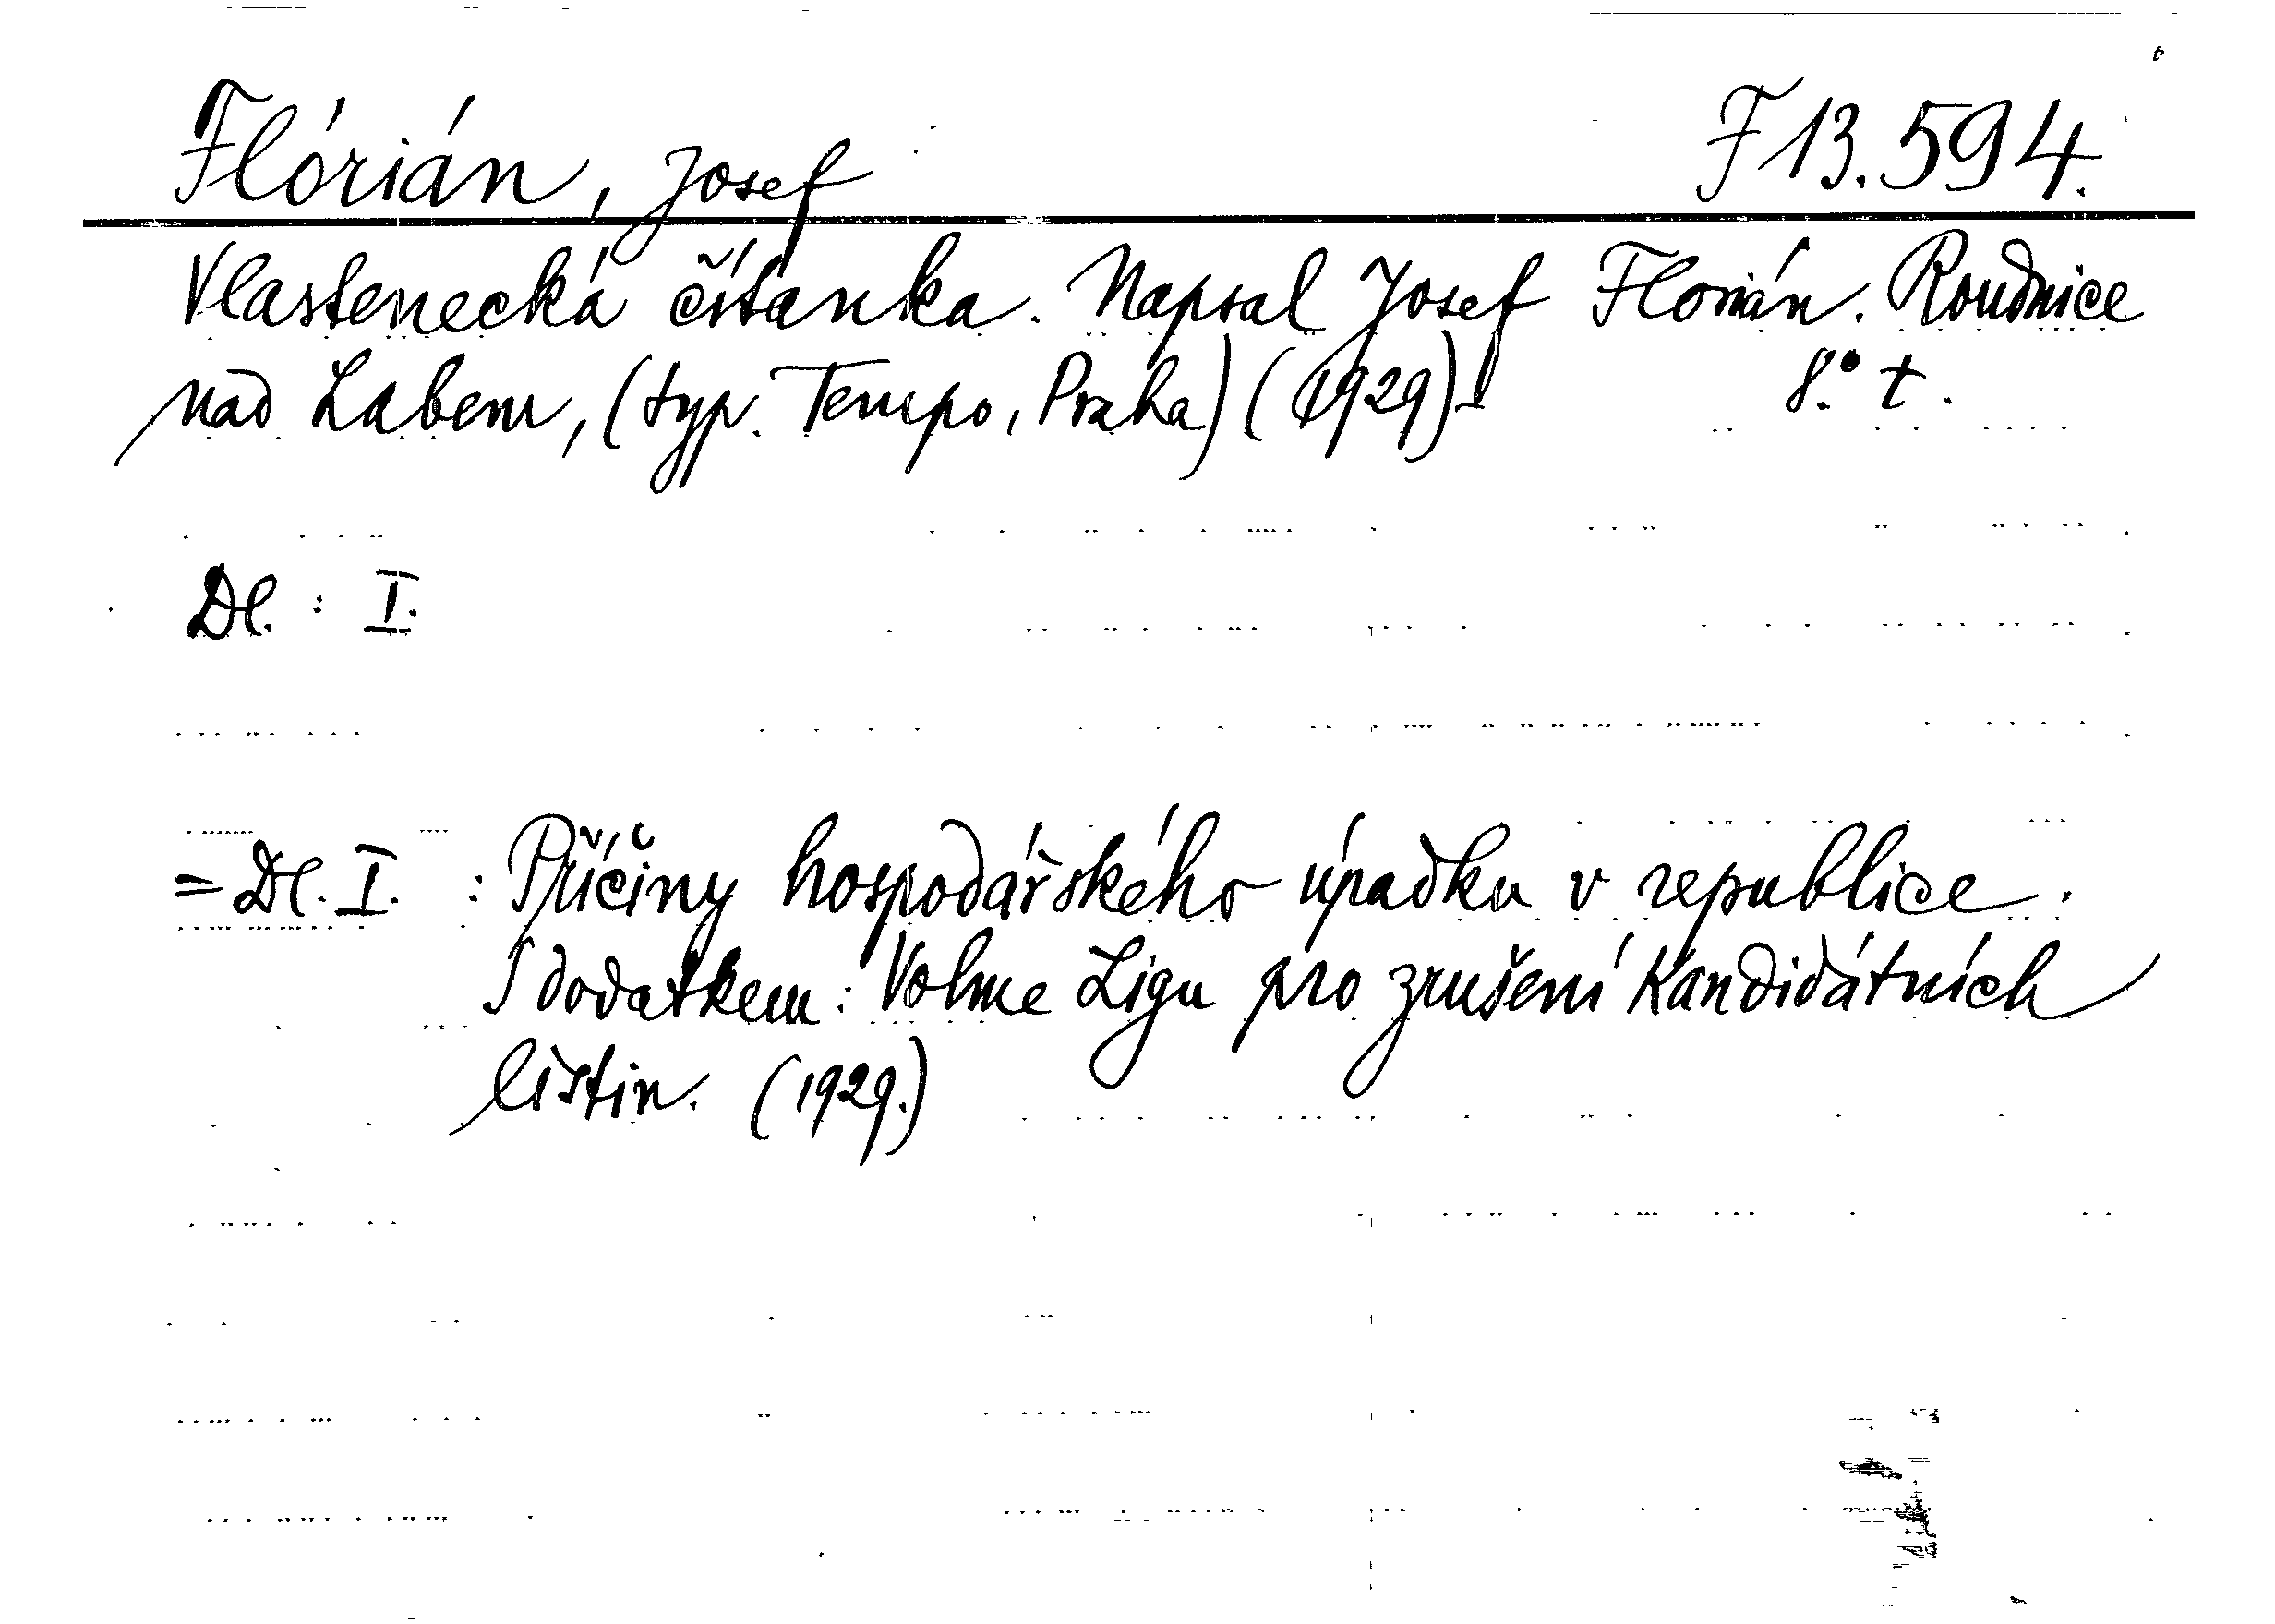 Flórián, Josef F 13.594.
Vlastenecká čítanka. Napsal Josef Florián. Roudnice
nad Labem, (typ. Tempo, Praha) (1929) 8° t.
Dl. : I.
= Dl. I. : Příčiny hospodářského úpadku v republice.
S dodatkem: Volme Ligu pro zrušení Kandidátních
listin. (1929.)